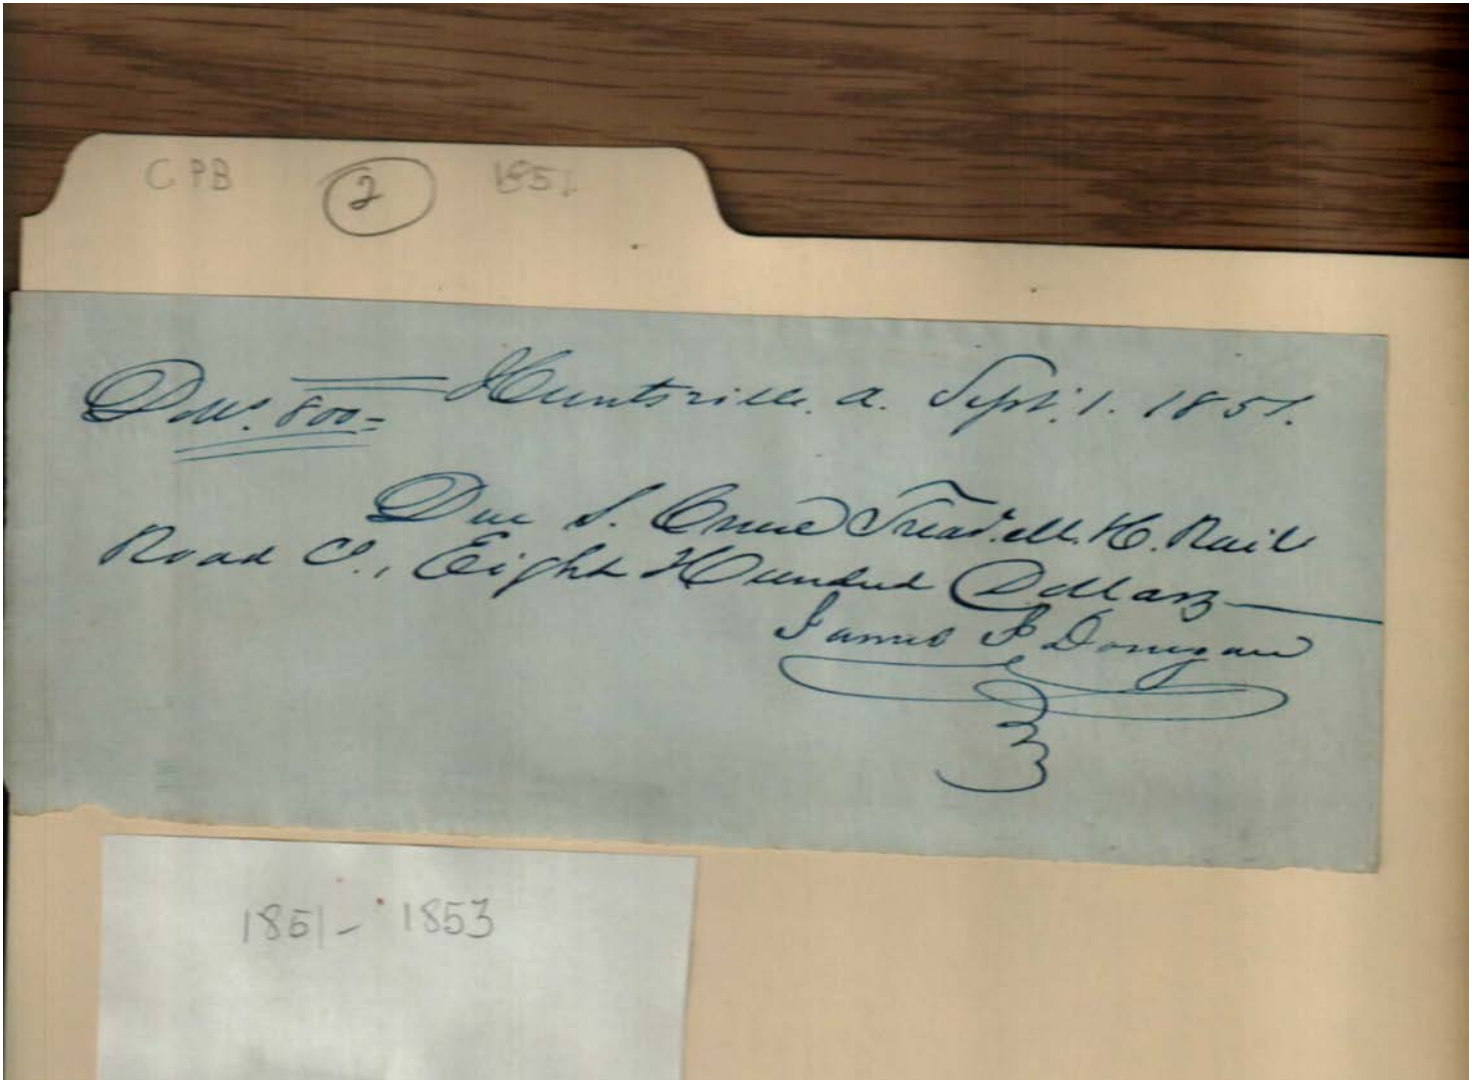 CPB 2 1851
Dolls. 800= Huntsville. a. Sept. 1. 1851.
Due S. Cruse Treas. M. & C. Rail
Road Co., Eight Hundred Dollars
James J Donegan
1851- 1853